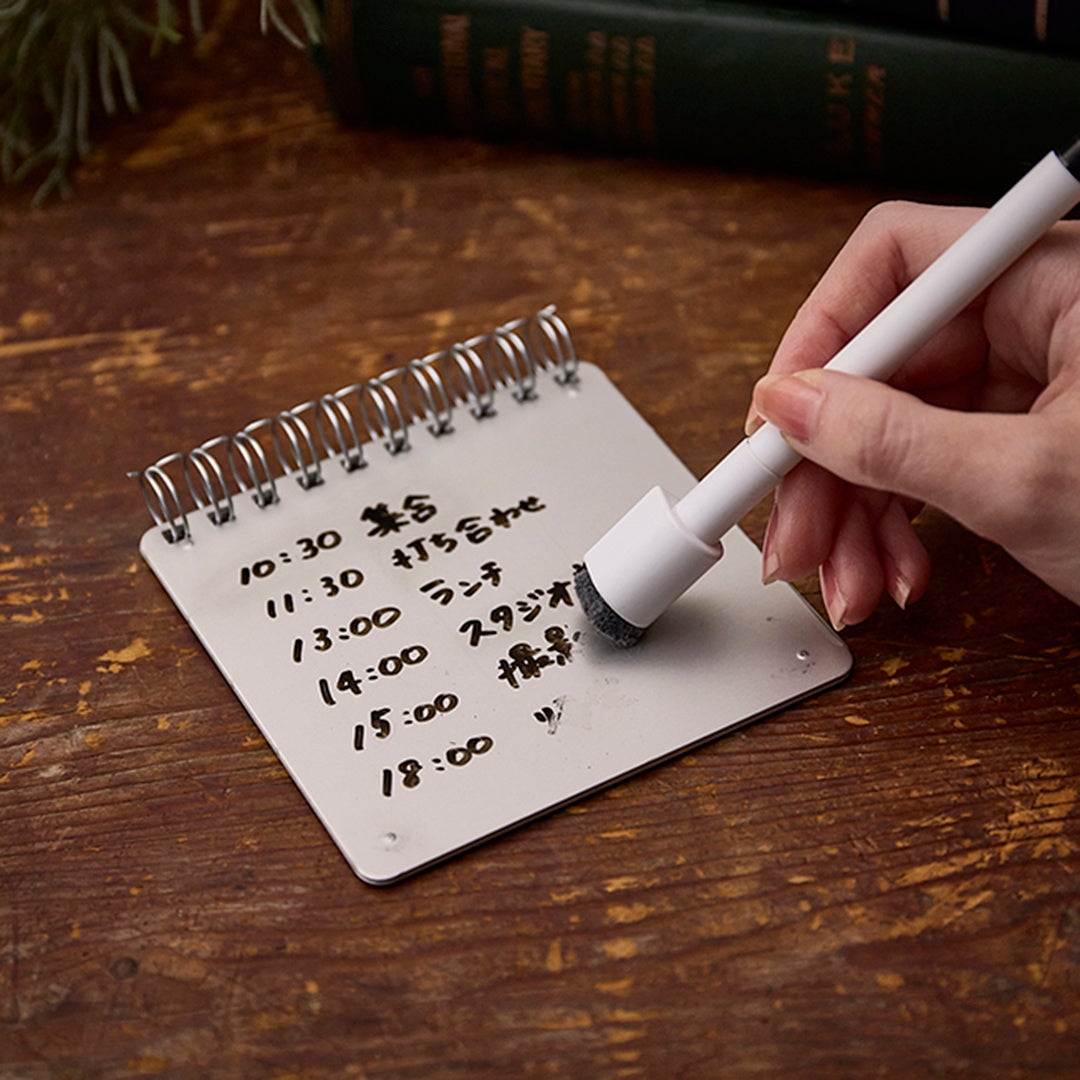 10:30 集合
11:30 打ち合わせ
13:00 ランチ
14:00 スタジオ
15:00 撮影
18:00
LUKE